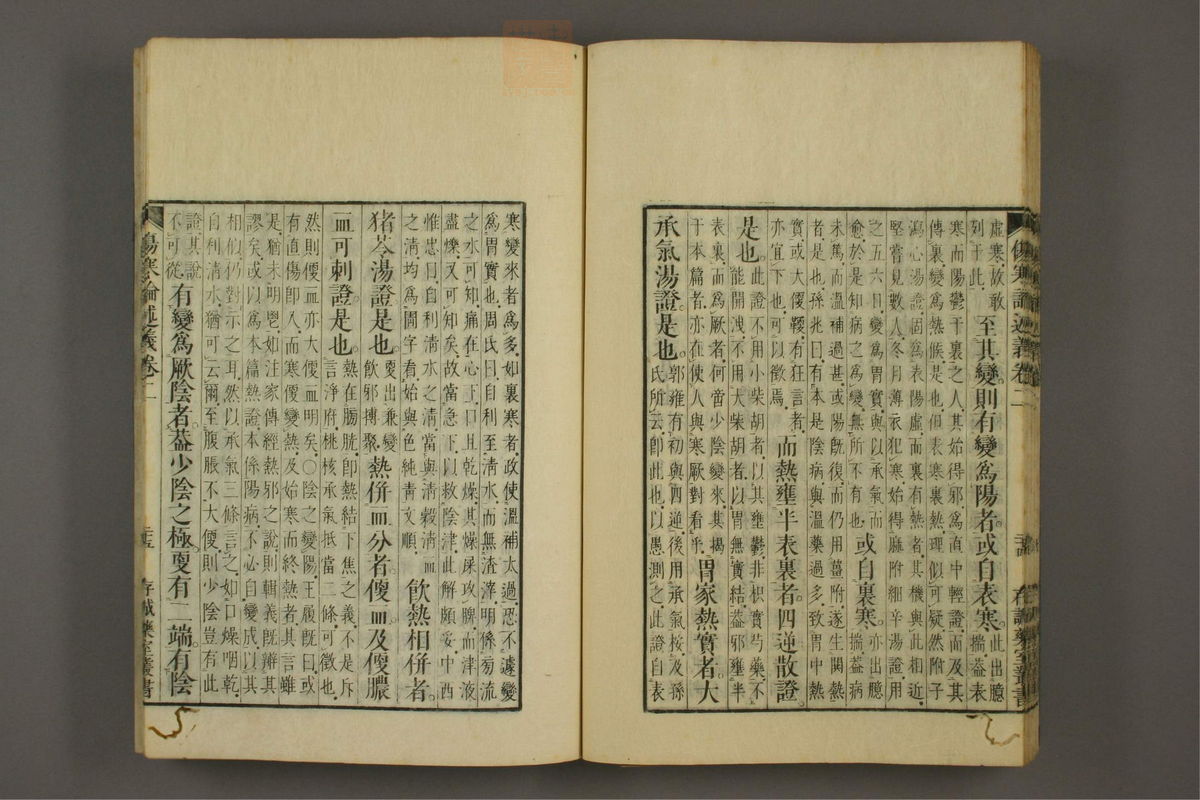 虛寒。故敢列于此。至其變則有變爲陽者。或自表寒。此出臆揣。葢表
寒而陽鬱于裏之人。其始得邪。爲直中輕證。而及其
傳裏。變爲熱候是也。但表寒裏熱。理似可疑。然附子
瀉心湯證。固爲表陽虛而裏有熱者。其機與此相近。
堅嘗見數人冬月薄衣犯寒。始得麻附細辛湯證。用
之五六日。變爲胃實。與以承氣而
愈。於是知病之爲變。無所不有也。或自裏寒。亦出臆揣。葢病
未篤而溫補過甚。或陽既復而仍用薑附。遂生熱
者是也。孫兆曰。有本是陰病。與溫藥過多。致胃中熱
實。或大便鞕。有狂言者。
亦宜下也。可以徵焉。而熱壅半表裏者。四逆散證。
是也。此證不用小柴胡者。以其壅鬱。非枳實芍藥。不
能開洩。不用大柴胡者。以胃無實結。葢邪壅半
表裏。而爲厥者。何啻少陰變來。其揭
于本篇者。亦在使人與寒厥對看乎。胃家熱實者。大
承氣湯證。是也。郭雍有初與四逆。後用承氣按。及孫
氏所云。卽此也。以愚測之。此證自表
傷寒論述義卷二
寒變來者爲多。如裏寒者。政使溫補太過。恐不遽變
爲胃實也。周氏曰。自利至清水。而無渣滓。明係旁流
之水可知。痛在心下。口且乾燥。其燥屎攻脾。而津液
盡爍。又可知矣。故當急下。以救陰津。此解頗妥。中西
惟忠曰。自利清水之清。當與清穀清血
之清。均爲圊字看。始與色純青文順。飮熱相併者。
猪苓湯證。是也。更出兼變飮邪搏聚熱併血分者。便血及便膿
血可刺證。是也。熱在膀胱。卽熱結下焦之義。不是斥
言淨府。桃核承氣抵當二條。可徵也。
然則便血。亦大便血明矣。○陰之變陽。王履既曰。或
有直傷卽入。而寒便變熱。及始寒而終熱者。其言雖
是。猶未明鬯。如注家傳經熱邪之說。則輯義既辨其
謬矣。或以爲本篇熱證。本係陽病。不必自變成。以其
相似。仍對示之耳。然以承氣三條言之。如口燥咽乾。
自利清水。猶可云爾。至腹脹不大便。則少陰豈有此
證。其說不可從。有變爲厥陰者。葢少陰之極。更有二端。有陰
傷寒論述義卷二
存誠藥室叢書